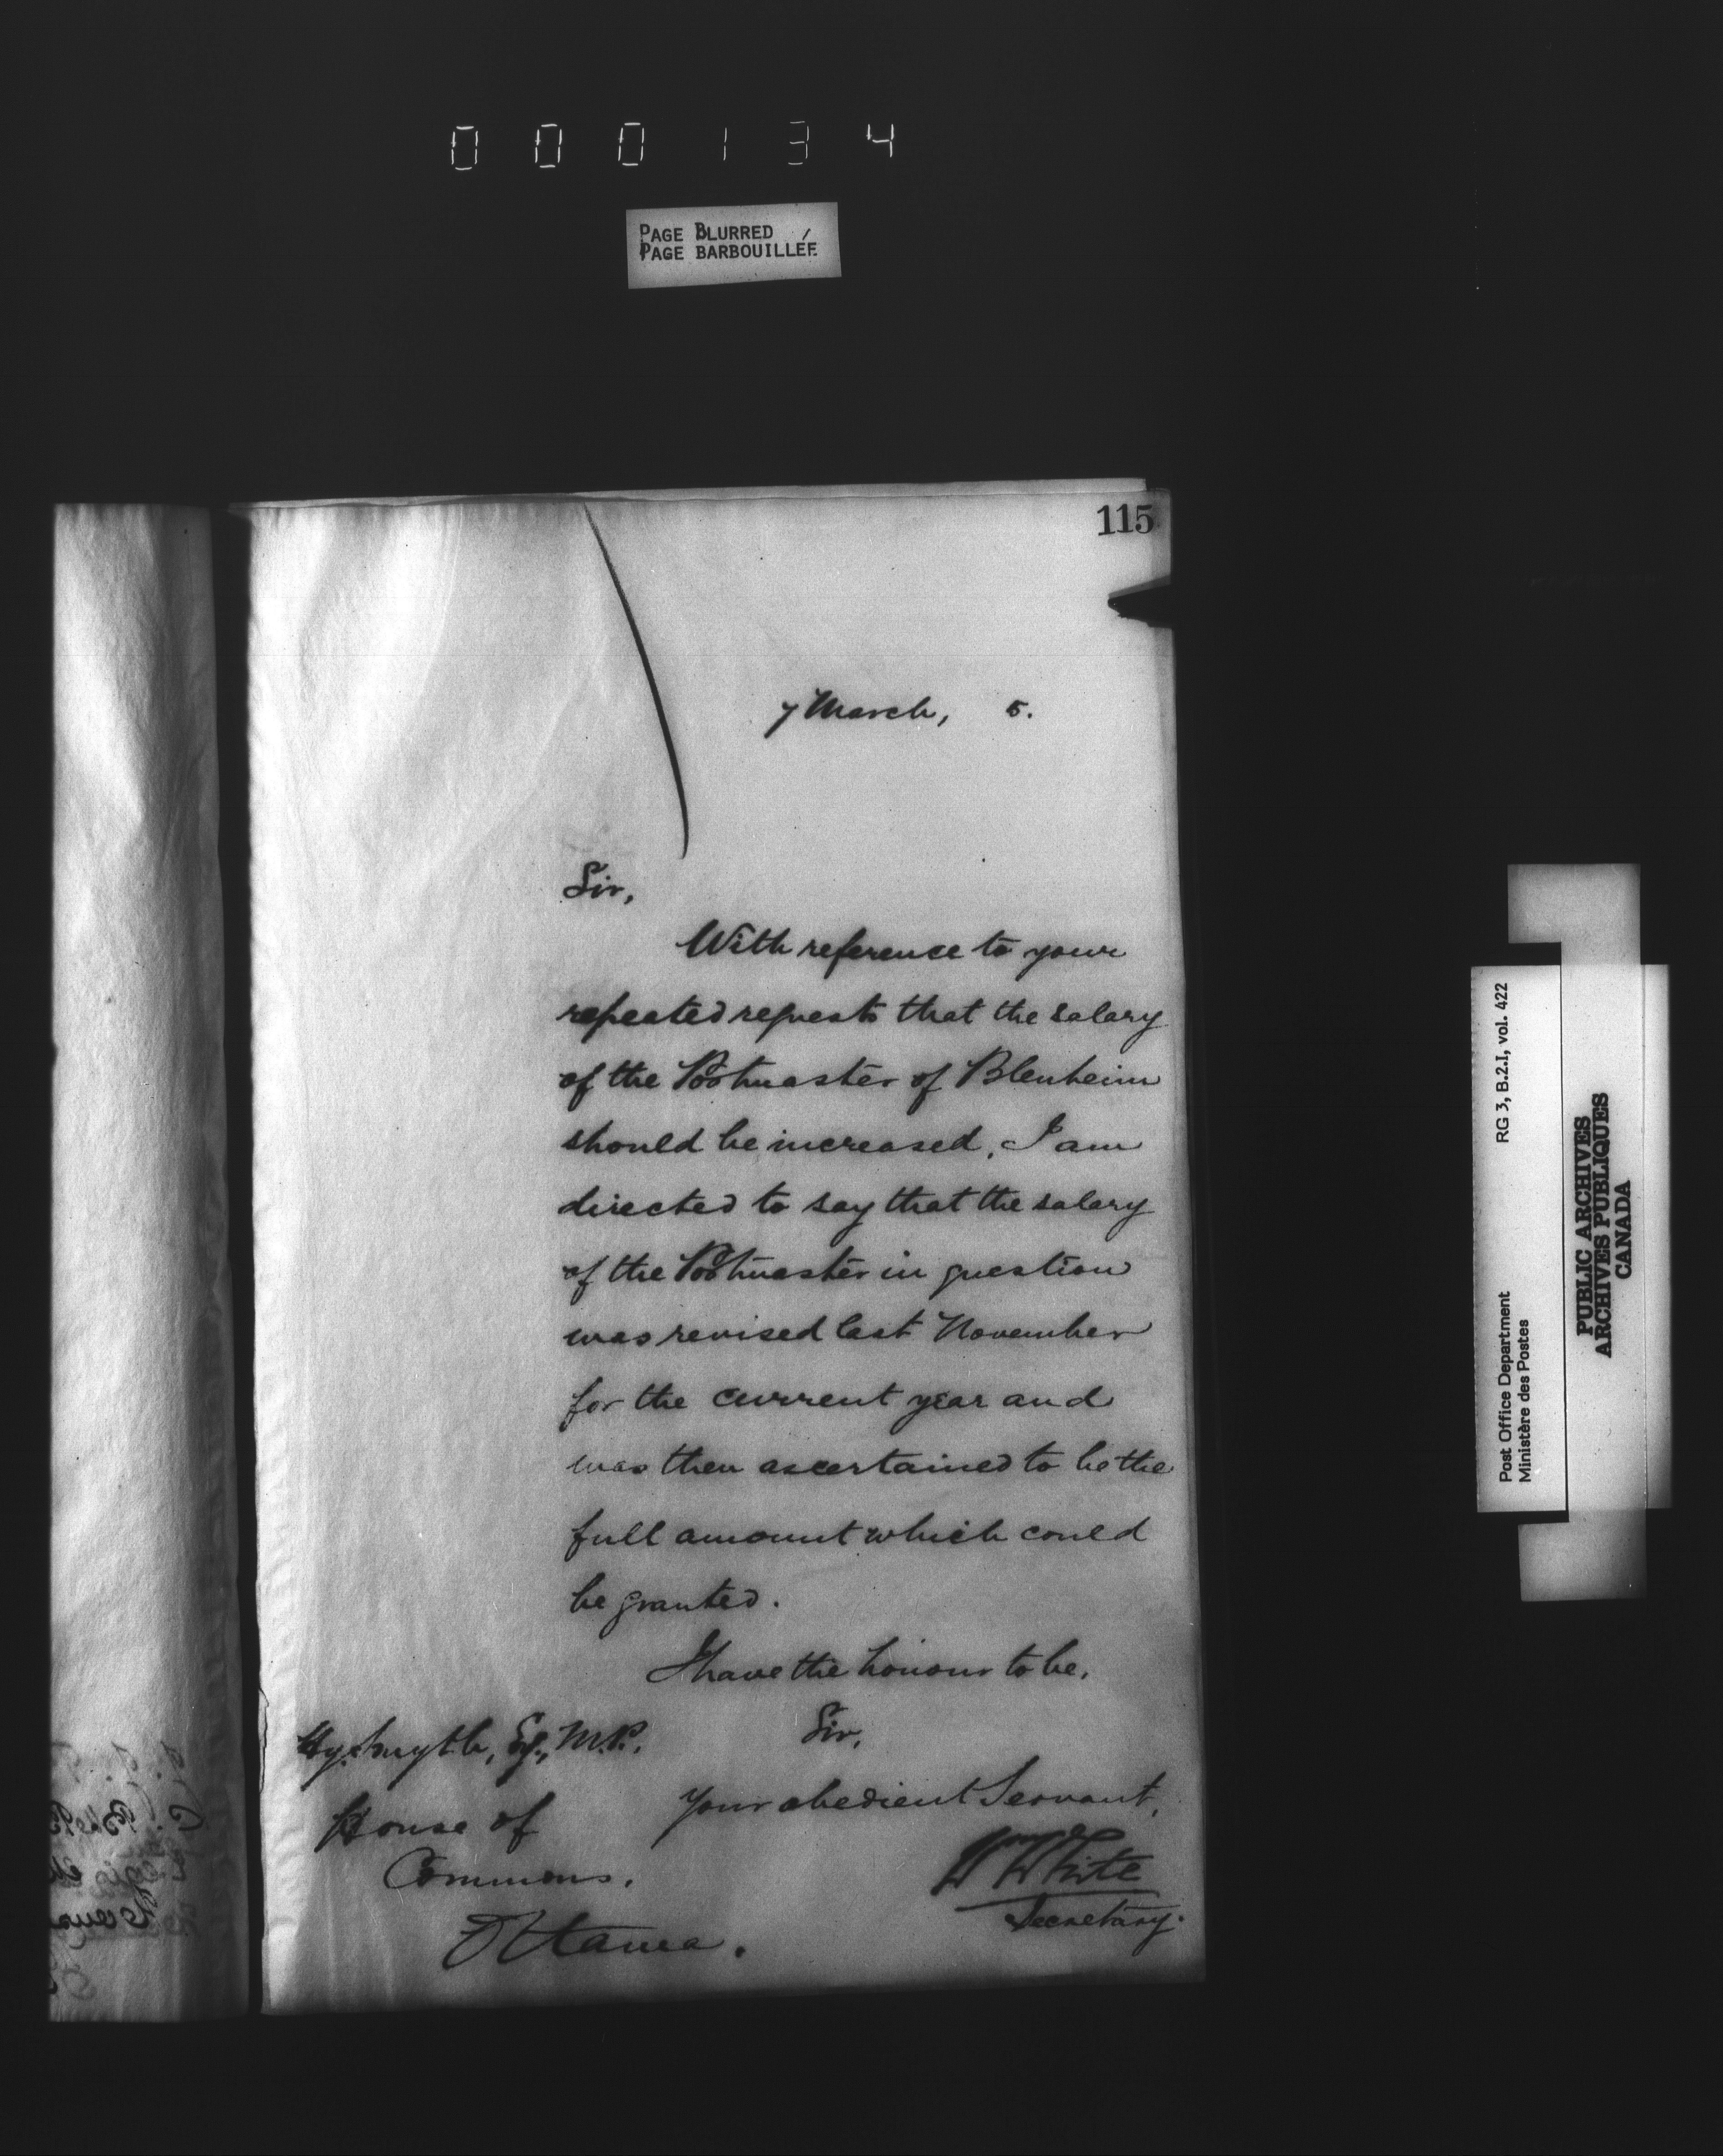 000134
PAGE BLURRED
PAGE BARBOUILLÉE
115
7 March, 5.
Sir,
With reference to your
repeated requests that the salary
of the Postmaster of Blenheim
should be increased, I am
directed to say that the salary
of the Postmaster in question
was revised last November
for the current year and
was then ascertained to be the
full amount which could
be granted.
I have the honour to be,
Sir,
Your obedient Servant,
Wm White
Secretary.
Hy. Smyth, Esq., M.P.,
House of
Commons,
Ottawa.
RG 3, B.2.I, vol. 422
Post Office Department
Ministère des Postes
PUBLIC ARCHIVES
ARCHIVES PUBLIQUES
CANADA